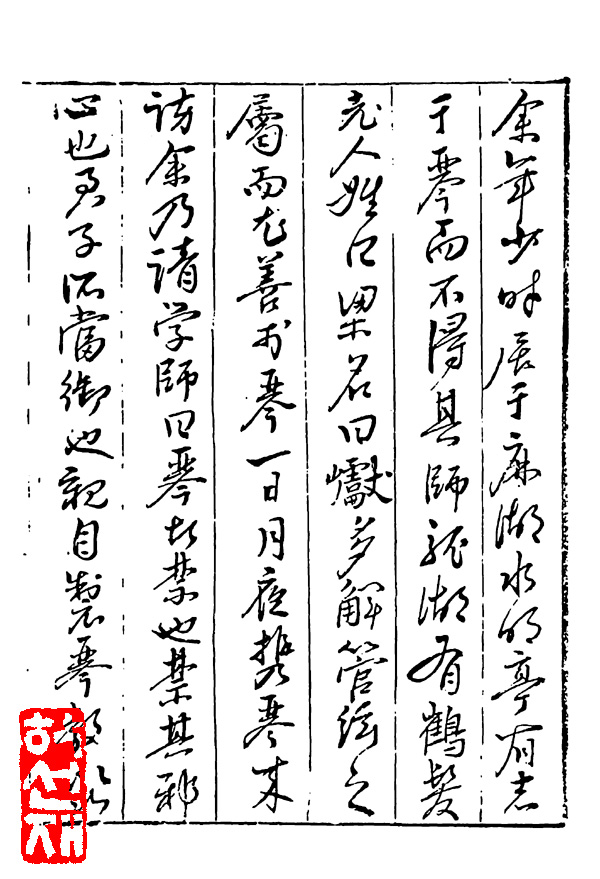 余年少時居于湖水明亭有志
于琴而不得其師龍湖有鶴髮
老人姓曰梁名曰巘多解管絃之
屬而尤善於琴一日月夜携琴来
訪余乃請学師曰琴者禁也禁其邪
心也君子所當御也親自製琴
하선재